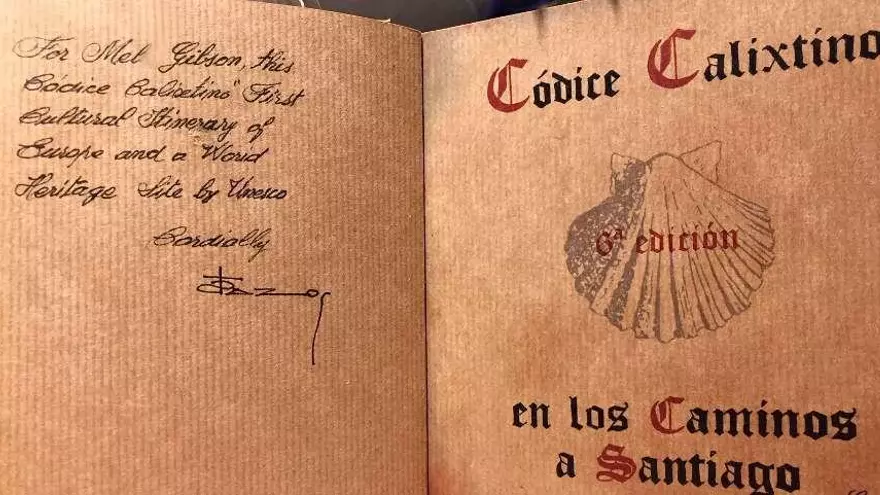 For Mel Gibson, this
Códice Calixtino" First
Cultural Itinerary of
Europe and a World
Heritage Site by Unesco
Cordially
Códice Calixtino
6ª edición
en los Caminos
a Santiago